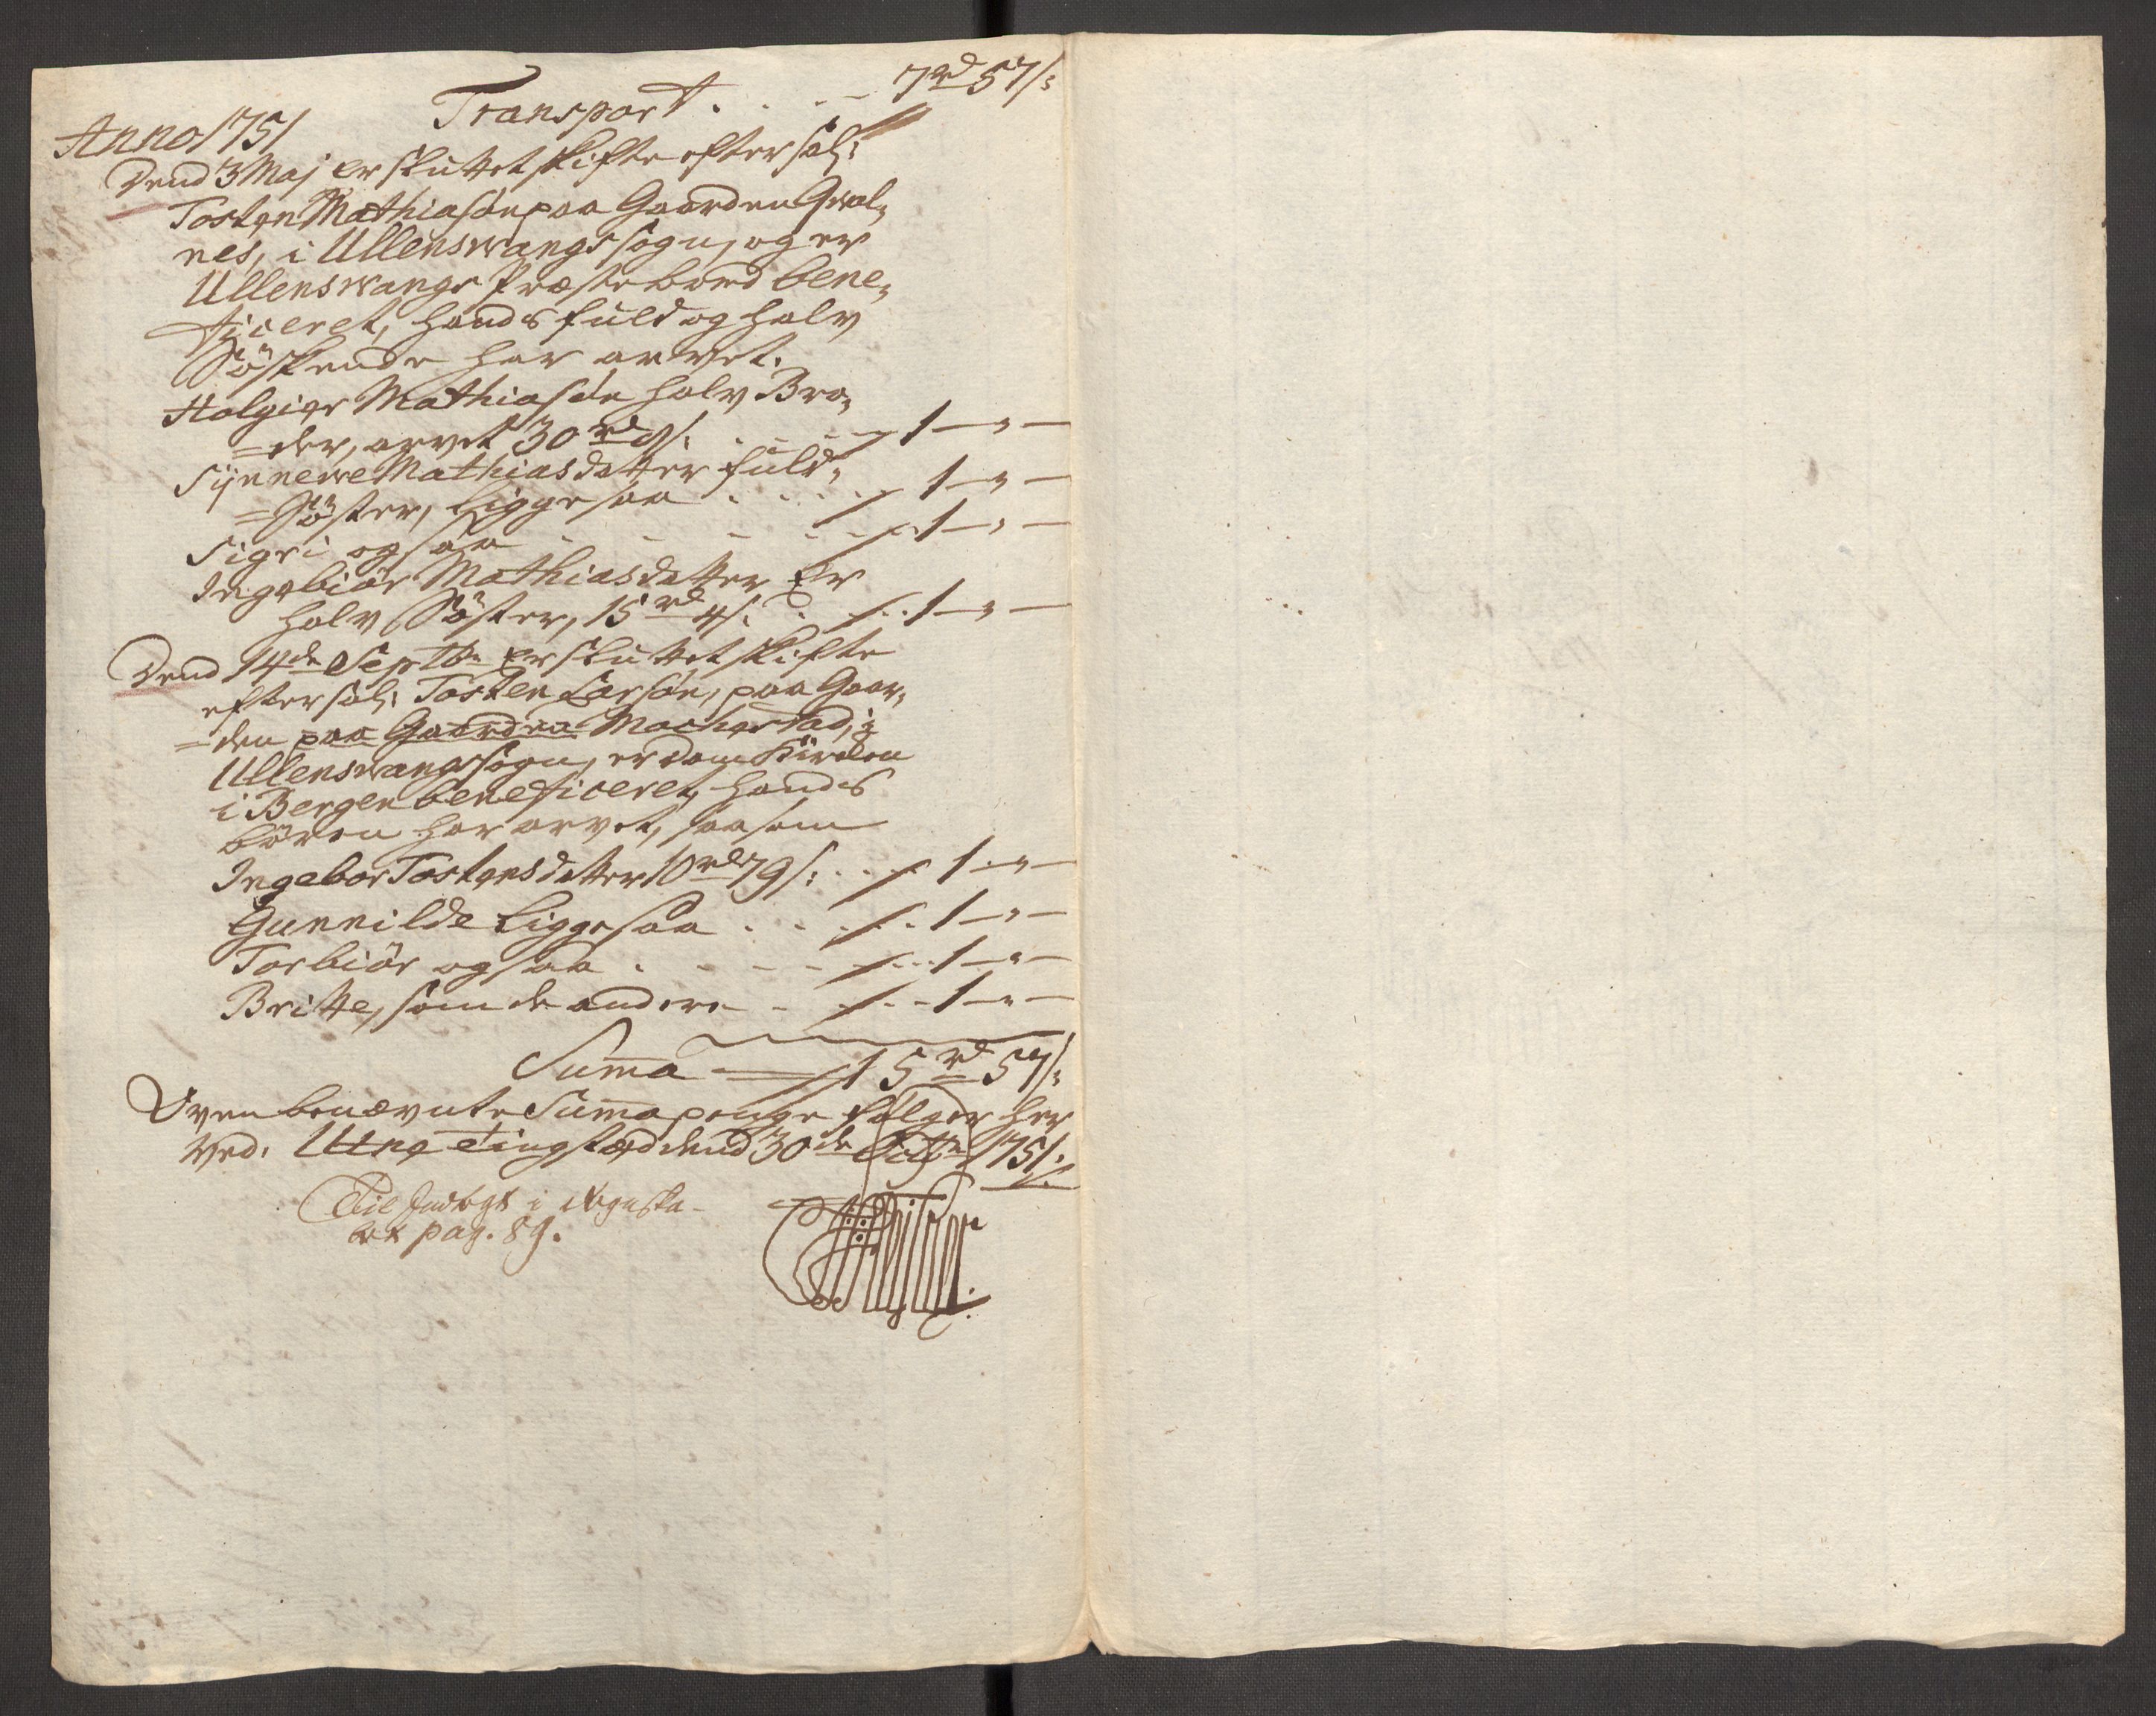 Transport . . . 7rd 57/:
Anno 1751
Dend 3 Maj er sluttet skifte efter sal:
Tosten Mathiasøn paa Gaarden Qval,
nes, i Ullenswangs sogn, og er
Ullenswangs Præstebord bene,
ficeret, hands fuld og halv
Söskende har arvet.
Halgier Mathiasøn halv Bro,
=der, arvet 30rd 9/: . . . 1 - " -
Synnewe Mathiasdatter fuld,
=Söster, Liggesaa . . . . 1 - " -
Sigri ogsaa - - - - 1 - " -
Ingebiör Mathiasdatter Er
halv Söster, 15rd 4/: . . 1 - " -
Dend 14de Septbr Er sluttet skifte
efter sal: Tosten Larsøn, paa Gaar,
=den paa Gaarden Machestad, i
Ullenswangs sogn, er dom Kirken
i Bergen beneficeret, hands
börn har arvet, saasom
Ingebor Tostensdatter 10rd 79/: . . 1 - " -
Gunnilde Liggesaa . . . . 1 - " -
Torbiör ogsaa . - - - 1 - " -
Britte, som de andre - - 1 - " -
Summa 15rd 57/:
Oven benævnte Summa penge følger her
ved. Utne Tingsted dend 30de 1751:
Til Indtegt i Regnska-
bet pag. 89.